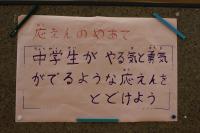 応えんのめあて
中学生が やる気と勇気
がでるような応えんを
とどけよう